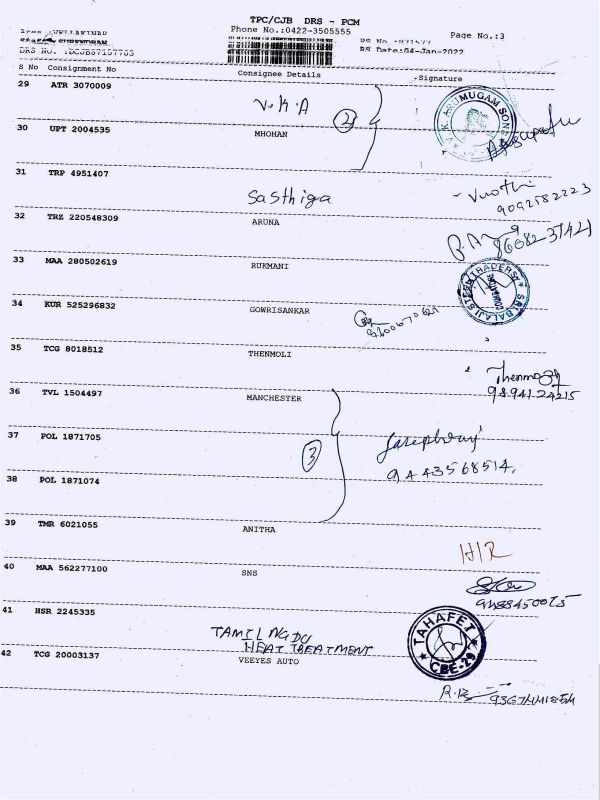 TPC/CJB DRS - PCM
Phone No.:0422-3505555 Page No.:3
DRS No. :DCJB87157703 RS Date:04-Jan-2022
S No Consignment No Consignee Details Signature
29 ATR 3070009
V.K.A 2
V.K. ARUMUGAM SONS
30 UPT 2004535 MHOHAN
31 TRP 4951407
Sasthiga
9092582223
32 TRZ 220548309 ARUNA
33 MAA 280502619 RUKMANI
SRI BALAJI STEEL TRADERS
34 KUR 525296832 GOWRISANKAR
35 TCG 8018512 THENMOLI
9894124215
36 TVL 1504497 MANCHESTER
37 POL 1871705
3
9443568514.
38 POL 1871074
39 TMR 6021055 ANITHA
H/R
40 MAA 562277100 SNS
41 HSR 2245335
TAMIL NADU
HEAT TREATMENT
TAHAFET
CBE-29
42 TCG 20003137 VEEYES AUTO